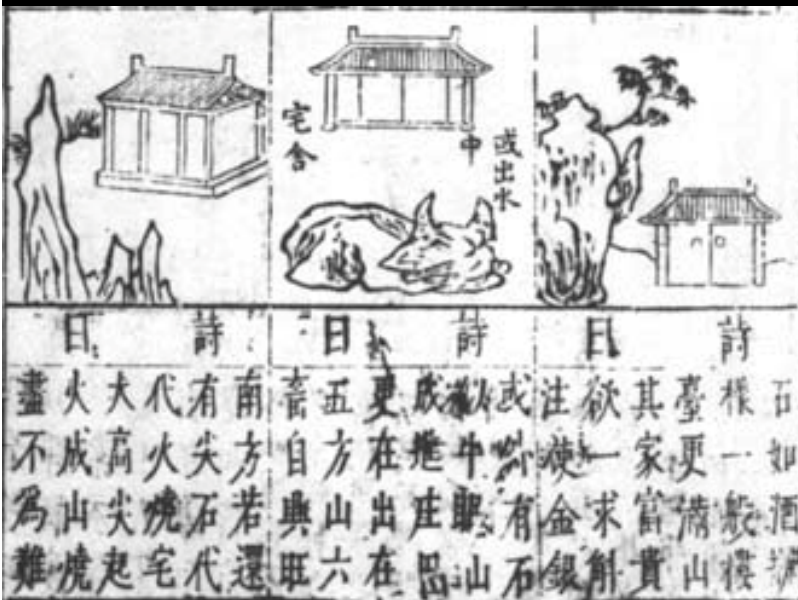 或出水
中
宅舍
詩曰
石如酒
樣一般樓
臺更滿山
其家富貴
欲一求斛
注使金銀
詩曰
或有石
似牛眠山
成進庄
更在出在
五方山六
畜自興旺
詩曰
南方若還
有尖石代
代火燒宅
大高尖起
火成山燒
盡不為難